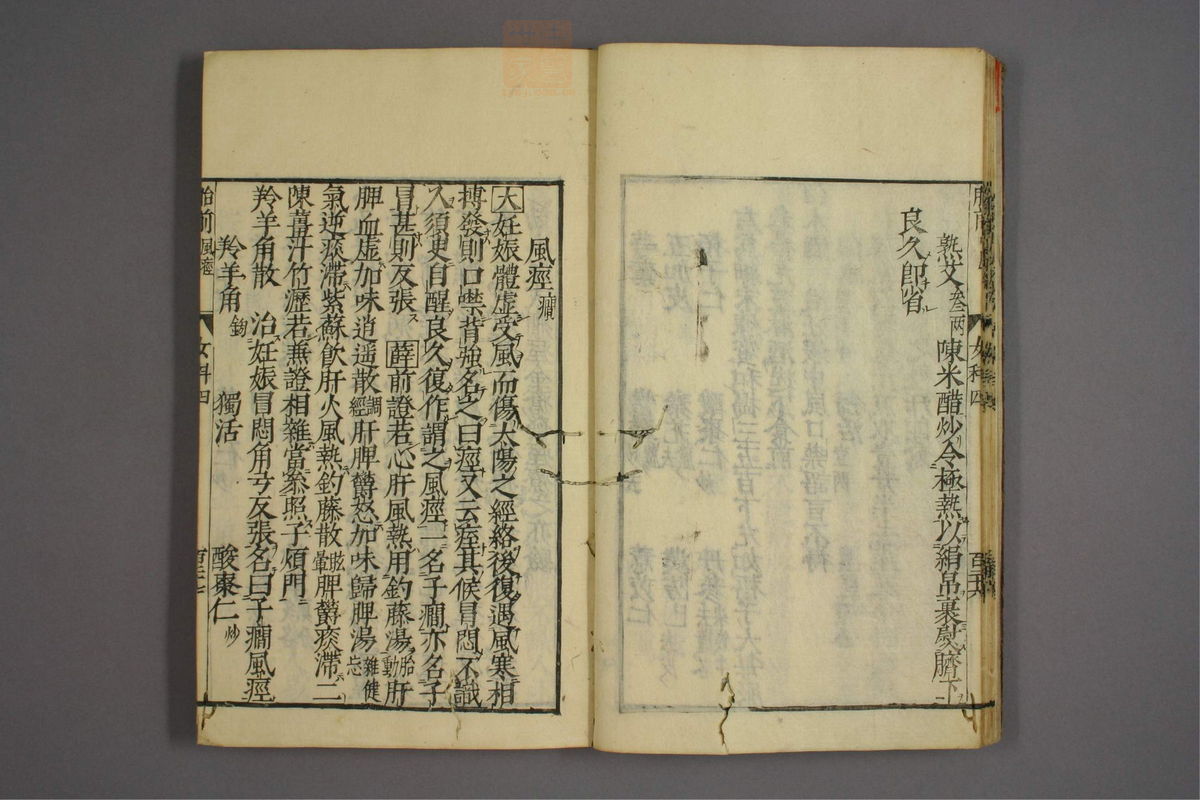 熟艾叁兩 陳米醋炒令極熱以絹帛裹熨臍下
良久即省
女科四
風痙癇
大 妊娠體虛受風而傷太陽之經絡後復遇風寒相
搏發則口噤背強名之曰痙又云痓其候冒悶不識
人須臾自醒良久復作謂之風痙一名子癇亦名子
冒甚則反張 薛 前證若心肝風熱用鈎藤湯胎動肝
脾血虛加味逍遥散調經肝脾鬱怒加味歸脾湯健忘
氣逆痰滯紫蘇飲肝火風熱鈎藤散眩暈脾鬱痰滯二
陳薑汁竹瀝若兼證相雜當叅照子煩門
羚羊角散 治妊娠冒悶角弓反張名曰子癇風痙
羚羊角鎊 獨活 酸棗仁炒
胎前風痙 女科四